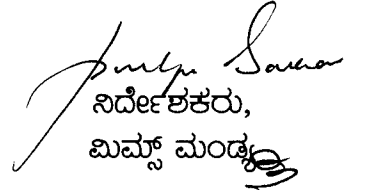 ನಿರ್ದೇಶಕರು,
ಮಿಮ್ಸ್ ಮಂಡ್ಯ